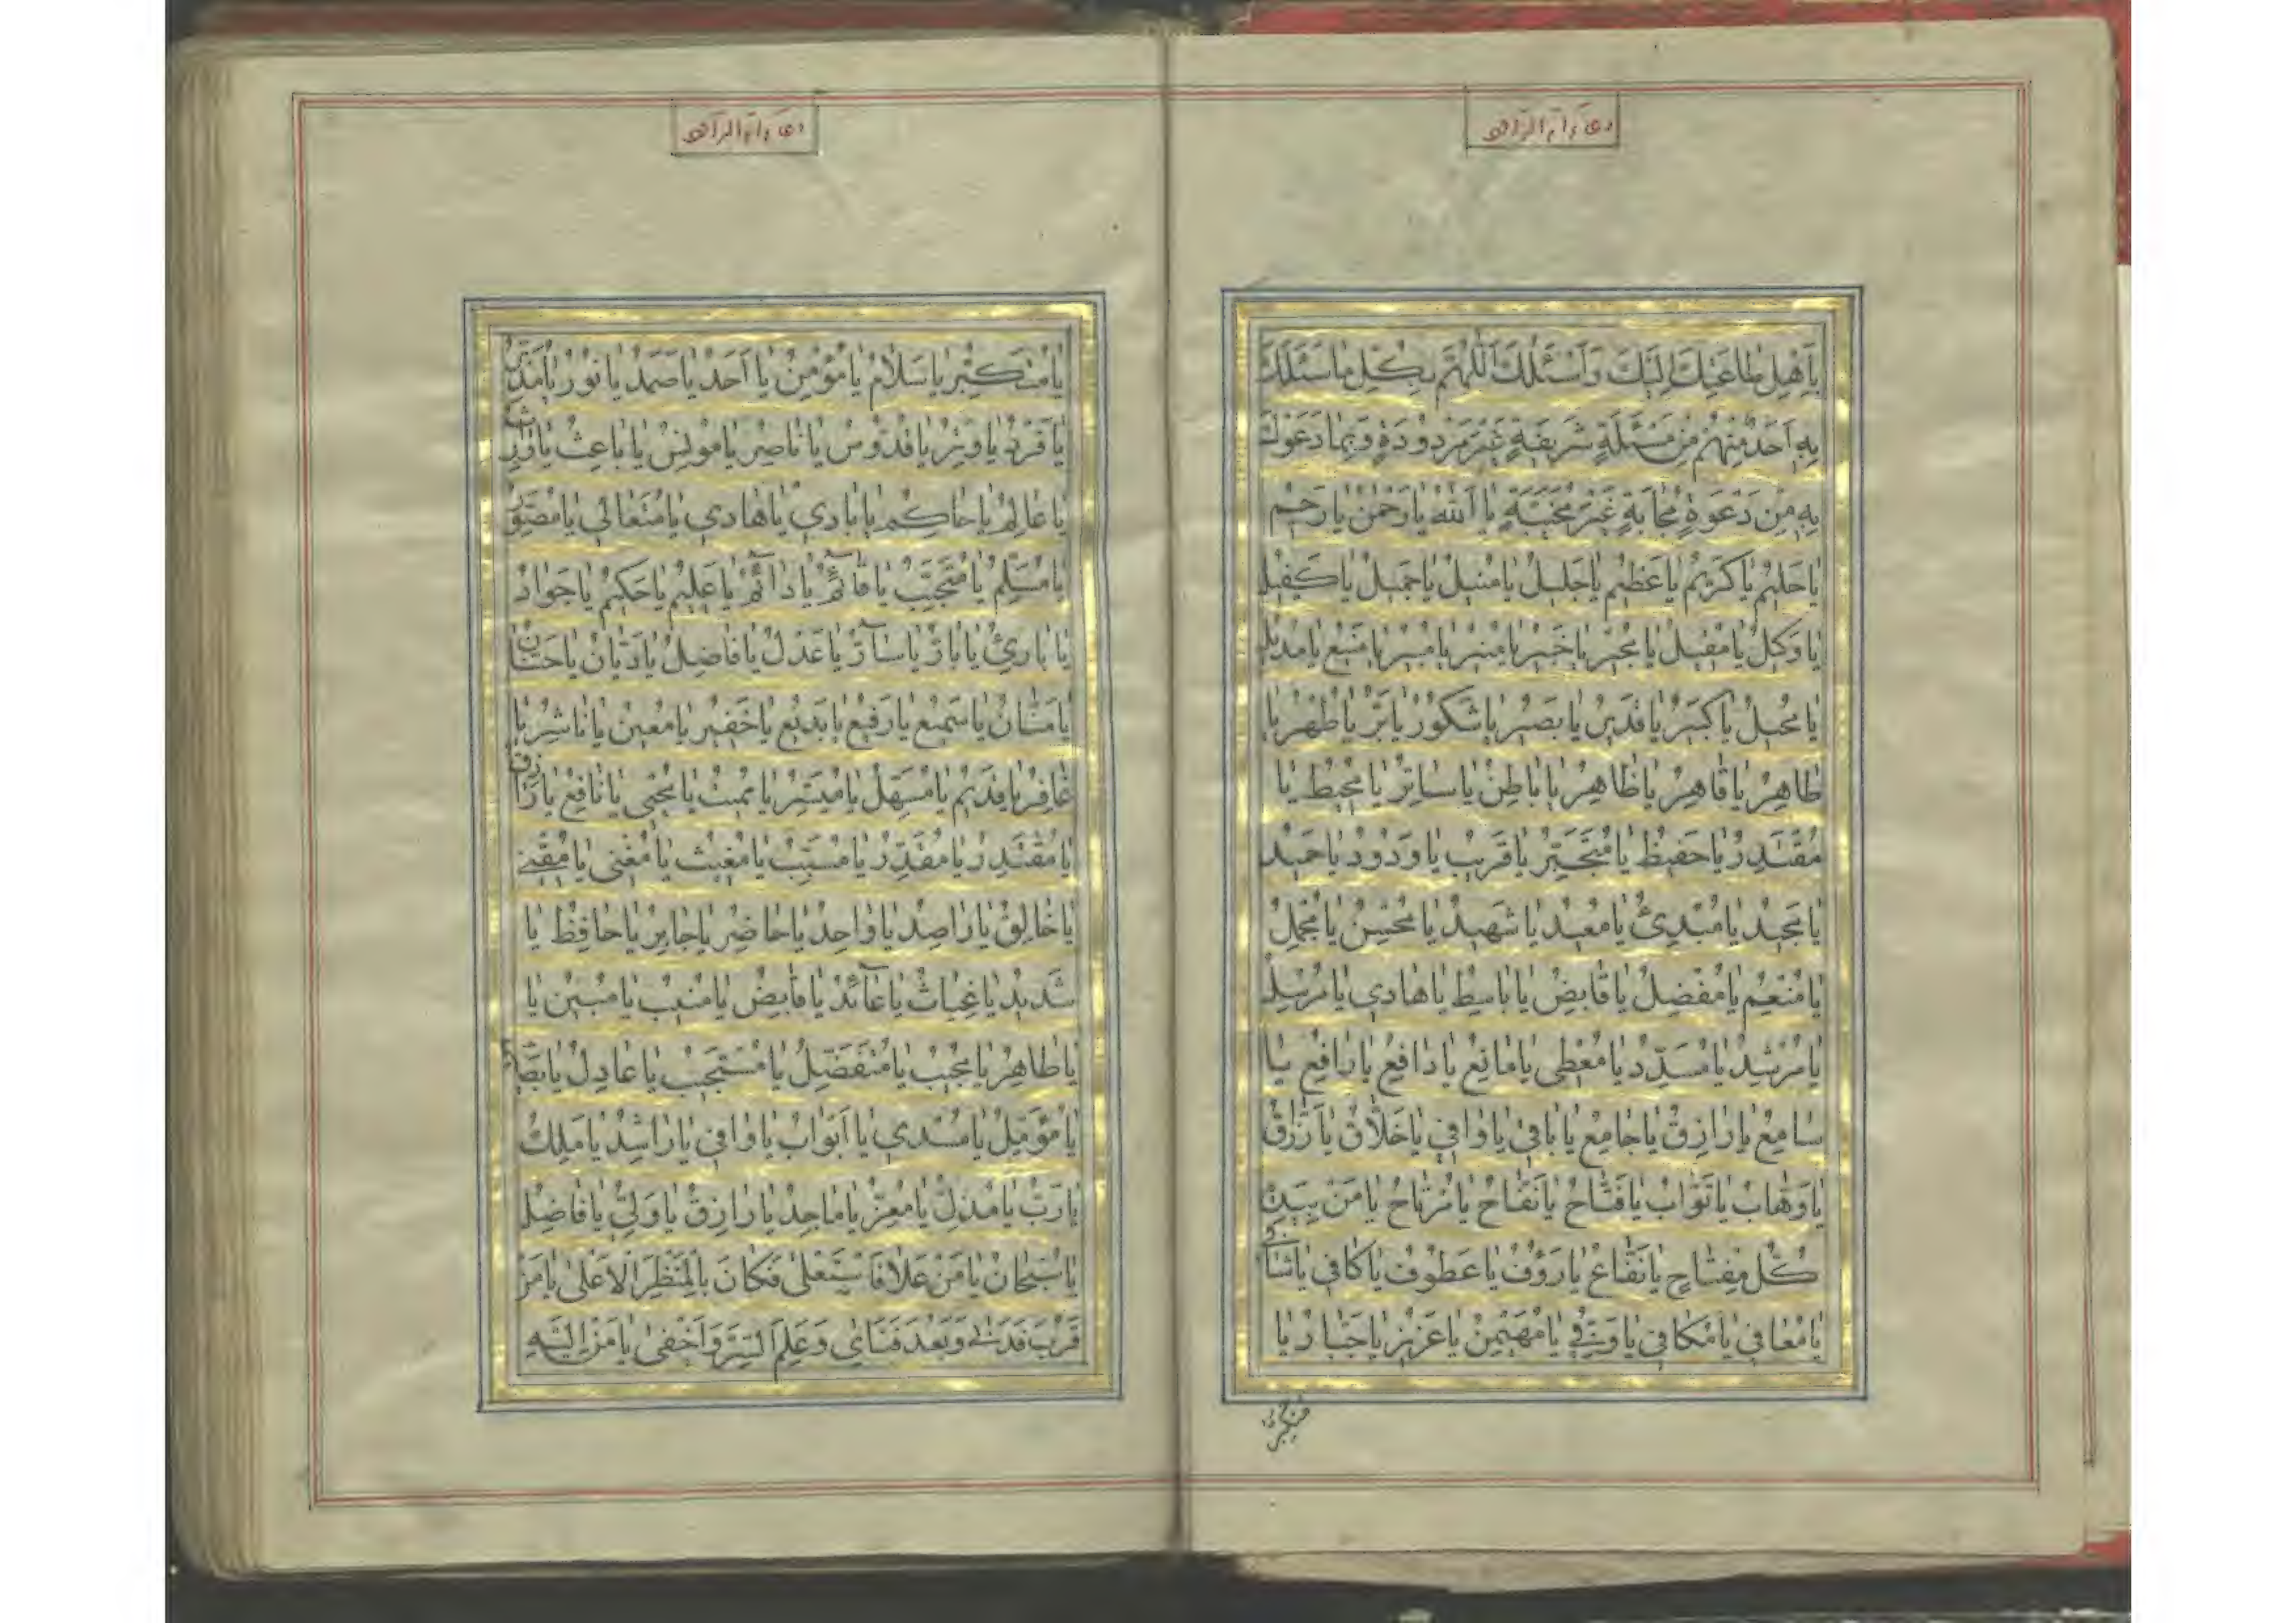 يا اَهْلِ طاعَتِكَ اِلَيْكَ وَاَسْئَلُكَ اَللّهُمَّ بِكُلِّ ما سَئَلَكَ
بِهِ اَحَدٌ مِنْهُمْ مِنْ مَسْئَلَةٍ شَريفَةٍ غَيْرَ مَرْدودَةٍ وَبِما دَعَوْكَ
بِهِ مِنْ دَعْوَةٍ مُجابَةٍ غَيْرِ مُخَيَّبَةٍ يا اَللّهُ يا رَحْمٰنُ يا رَحيمُ
يا حَليمُ يا كَريمُ يا عَظيمُ يا جَليلُ يا مُنيلُ يا جَميلُ يا كَفيلُ
يا وَكيلُ يا مُقيلُ يا مُجيرُ يا خَبيرُ يا مُنيرُ يا مُبيرُ يا مَنيعُ يا مُديلُ
يا مُحيلُ يا كَبيرُ يا قَديرُ يا بَصيرُ يا شَكورُ يا بَرُّ يا طُهْرُ يا
طاهِرُ يا قاهِرُ يا ظاهِرُ يا باطِنُ يا ساتِرُ يا مُحيطُ يا
مُقْتَدِرُ يا حَفيظُ يا مُتَجَبِّرُ يا قَريبُ يا وَدودُ يا حَميدُ
يا مَجيدُ يا مُبْدِئُ يا مُعيدُ يا شَهيدُ يا مُحْسِنُ يا مُجْمِلُ
يا مُنْعِمُ يا مُفْضِلُ يا قابِضُ يا باسِطُ يا هادي يا مُرْسِلُ
يا مُرْشِدُ يا مُسَدِّدُ يا مُعْطي يا مانِعُ يا دافِعُ يا رافِعُ يا
سامِعُ يا رازِقُ يا جامِعُ يا باقي يا واقي يا خَلّاقُ يا رَزّاقُ
يا وَهّابُ يا تَوّابُ يا فَتّاحُ يا نَفّاحُ يا مُرْتاحُ يا مَنْ بِيَدِهِ
كُلُّ مِفْتاحٍ يا نَفّاعُ يا رَؤُفُ يا عَطوفُ يا كافي يا شافي
يا مُعافي يا مُكافي يا وَفِيُّ يا مُهَيْمِنُ يا عَزيزُ يا جَبّارُ يا
يا مُتَكَبِّرُ يا سَلامُ يا مُؤْمِنُ يا اَحَدُ يا صَمَدُ يا نورُ يا مُدَبِّرُ
يا فَرْدُ يا وِتْرُ يا قُدّوسُ يا ناصِرُ يا مونِسُ يا باعِثُ يا وارِثُ
يا عالِمُ يا حاكِمُ يا بادي يا هادي يا مُتَعالي يا مُصَوِّرُ
يا مُسَلِّمُ يا مُتَحَبِّبُ يا قآئِمُ يا دآئِمُ يا عَليمُ يا حَكيمُ يا جَوادُ
يا بارِئُ يا بارُّ يا سآرُّ يا عَدْلُ يا فاضِلُ يا دَيّانُ يا حَنّانُ
يا مَنّانُ يا سَميعُ يا رَفيعُ يا بَديعُ يا خَفيرُ يا مُعينُ يا ناشِرُ يا
غافِرُ يا قَديمُ يا مُسَهِّلُ يا مُيَسِّرُ يا مُميتُ يا مُحْيي يا نافِعُ يا رازِقُ
يا مُقْتَدِرُ يا مُقَدِّرُ يا مُسَبِّبُ يا مُغيثُ يا مُغْني يا مُقْني
يا خالِقُ يا راصِدُ يا واحِدُ يا حاضِرُ يا جابِرُ يا حافِظُ يا
شَديدُ يا غِياثُ يا عآئِدُ يا قابِضُ يا مُنيبُ يا مُبينُ يا
يا طاهِرُ يا مُجيبُ يا مُتَفَضِّلُ يا مُسْتَجيبُ يا عادِلُ يا بَصّارُ
يا مُؤَمِّلُ يا مُسْدي يا اَبْوابُ يا وافي يا راشِدُ يا مَلِكُ
يا رَبُّ يا مُذِلُّ يا مُعِزُّ يا ماجِدُ يا رازِقُ يا وَلِيُّ يا فاضِلُ
يا سُبْحانُ يا مَنْ عَلا فَاسْتَعْلى فَكانَ بِالْمَنْظَرِ الْاَعْلى يا مَنْ
قَرُبَ فَدَنى وَبَعُدَ فَنَاى وَعَلِمَ السِّرَّ وَاَخْفى يا مَنْ اِلَيْهِ